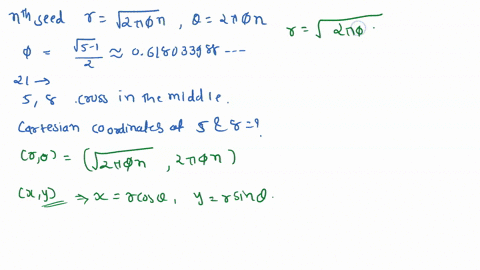 nth seed r = √2πϕn , θ = 2πϕn
ϕ = √5-1/2 ≈ 0.618033988 ---
21 →
5, 8 cross in the middle.
Cartesian coordinates at 5 & 8 = ?
(r,θ) = (√2πϕn , 2πϕn)
(x,y) ⇒ x = rcosθ, y = rsinθ.
r = √2πϕ